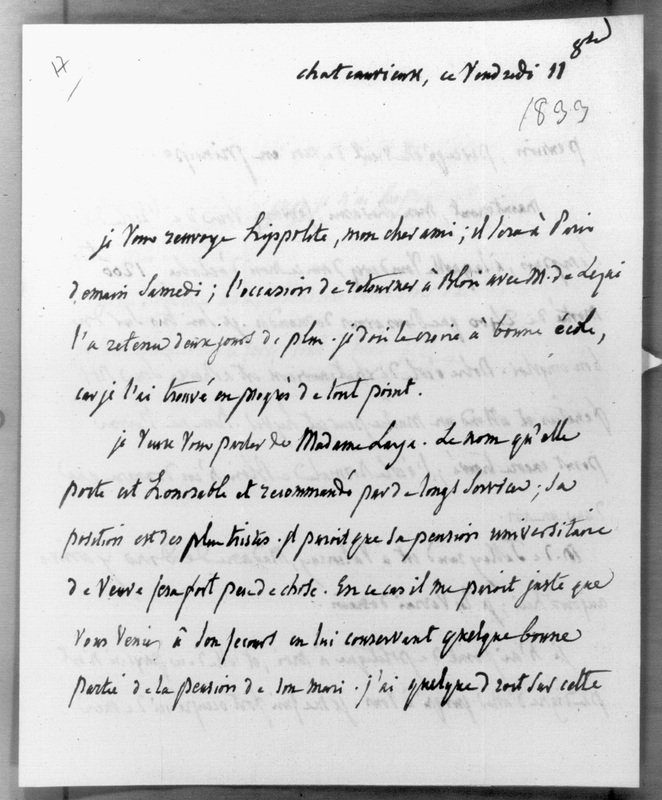 H
chateauvieux, ce Vendredi 11 8bre
1833
je Vous renvoye hippolite, mon cher ami; il sera à Paris
demain Samedi; l'occasion de retourner a Blois avec M. de
l'a retenu deux jours de plus. je dois le croire à bonne école,
car je l'ai trouvé en progrès de tout point.
je Veux Vous parler de Madame Laya. Le nom qu'elle
porte est honorable et recommandé par de longs services; sa
position est des plus tristes. il paroit que sa pension universitaire
de Veuve sera fort peu de chose. En ce cas il me paroit juste que
Vous Veniez à son secours en lui conservant quelque bonne
partie de la pension de son mari. j'ai quelque droit sur cette